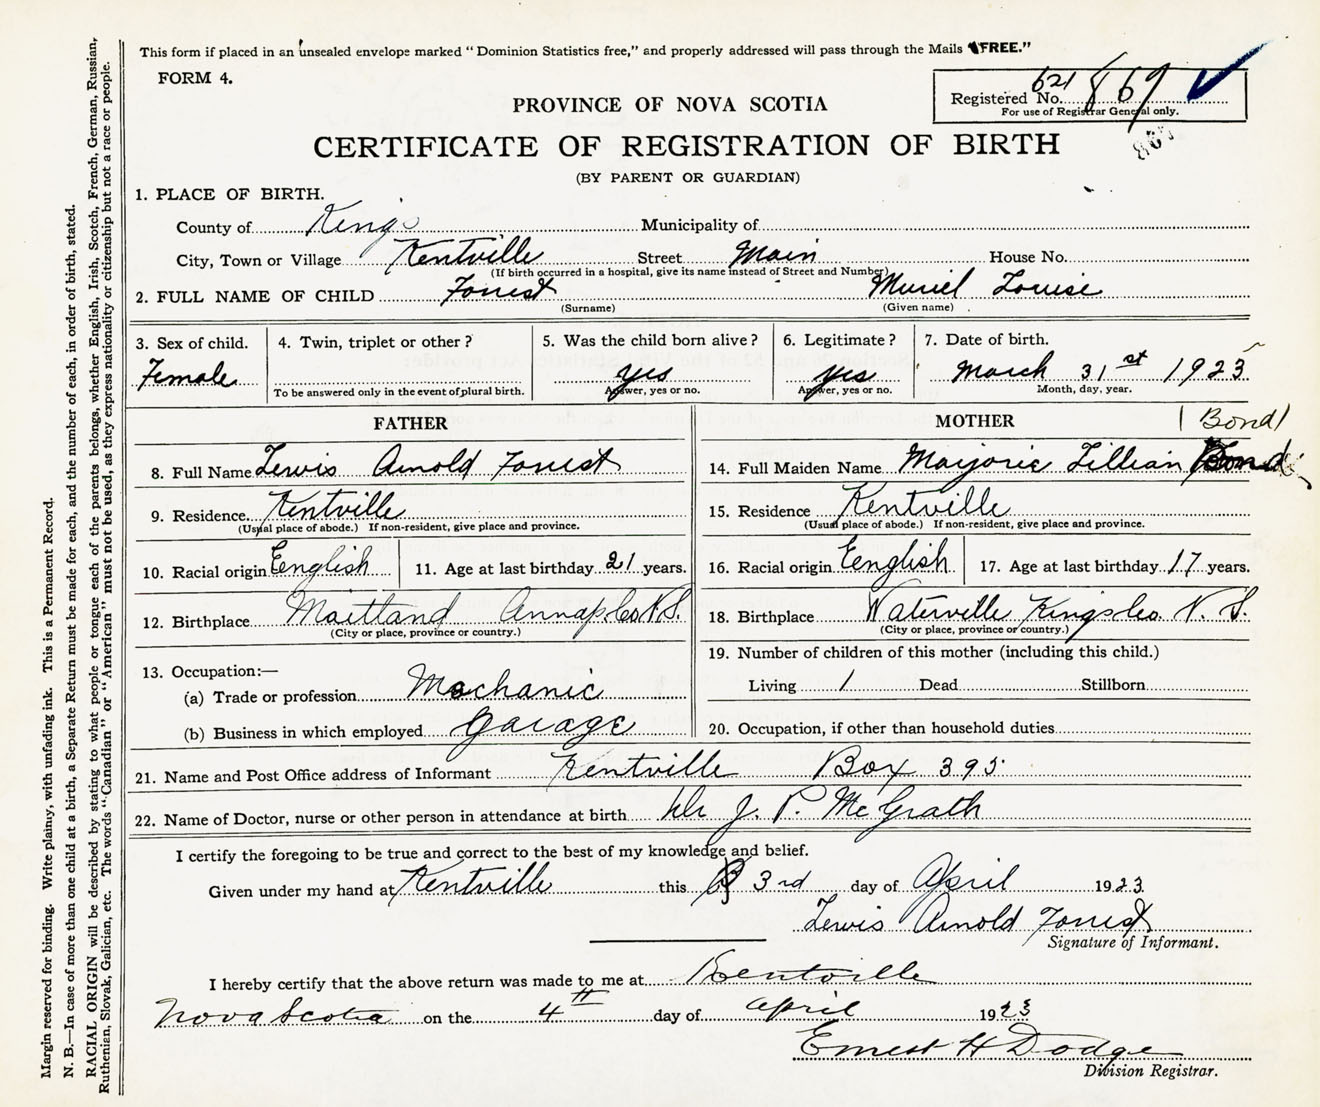 This form if placed in an unsealed envelope marked "Dominion Statistics free," and properly addressed will pass through the Mails "FREE."
FORM 4.
621 869
Registered No.
For use of Registrar General only.
PROVINCE OF NOVA SCOTIA
CERTIFICATE OF REGISTRATION OF BIRTH
(BY PARENT OR GUARDIAN)
1. PLACE OF BIRTH.
County of Kings Municipality of
City, Town or Village Kentville Street Main House No.
(If birth occurred in a hospital, give its name instead of Street and Number)
2. FULL NAME OF CHILD Forrest Muriel Louise
(Surname) (Given name)
3. Sex of child. 4. Twin, triplet or other? 5. Was the child born alive? 6. Legitimate? 7. Date of birth.
Female yes yes March 31st 1923
To be answered only in the event of plural birth. Answer, yes or no. Answer, yes or no. Month, day, year.
FATHER MOTHER (Bond)
8. Full Name Lewis Arnold Forrest 14. Full Maiden Name Marjorie Lillian Bond
9. Residence Kentville 15. Residence Kentville
(Usual place of abode.) If non-resident, give place and province. (Usual place of abode.) If non-resident, give place and province.
10. Racial origin English 11. Age at last birthday 21 years. 16. Racial origin English 17. Age at last birthday 17 years.
12. Birthplace Maitland Annap. Co. N.S. 18. Birthplace Waterville Kings Co. N. S.
(City or place, province or country.) (City or place, province or country.)
13. Occupation:— 19. Number of children of this mother (including this child.)
(a) Trade or profession Mechanic Living 1 Dead Stillborn
(b) Business in which employed Garage 20. Occupation, if other than household duties
21. Name and Post Office address of Informant Kentville Box 395
22. Name of Doctor, nurse or other person in attendance at birth Dr J. P. McGrath
I certify the foregoing to be true and correct to the best of my knowledge and belief.
Given under my hand at Kentville this 3rd day of April 1923
Lewis Arnold Forrest
Signature of Informant.
I hereby certify that the above return was made to me at Kentville
Nova Scotia on the 4th day of April 1923
Ernest H Dodge
Division Registrar.
Margin reserved for binding. Write plainly, with unfading ink. This is a Permanent Record.
N. B.—In case of more than one child at a birth, a Separate Return must be made for each, and the number of each, in order of birth, stated.
RACIAL ORIGIN will be described by stating to what people or tongue each of the parents belongs, whether English, Irish, Scotch, French, German, Russian,
Ruthenian, Slovak, Galician, etc. The words "Canadian" or "American" must not be used, as they express nationality or citizenship but not a race or people.